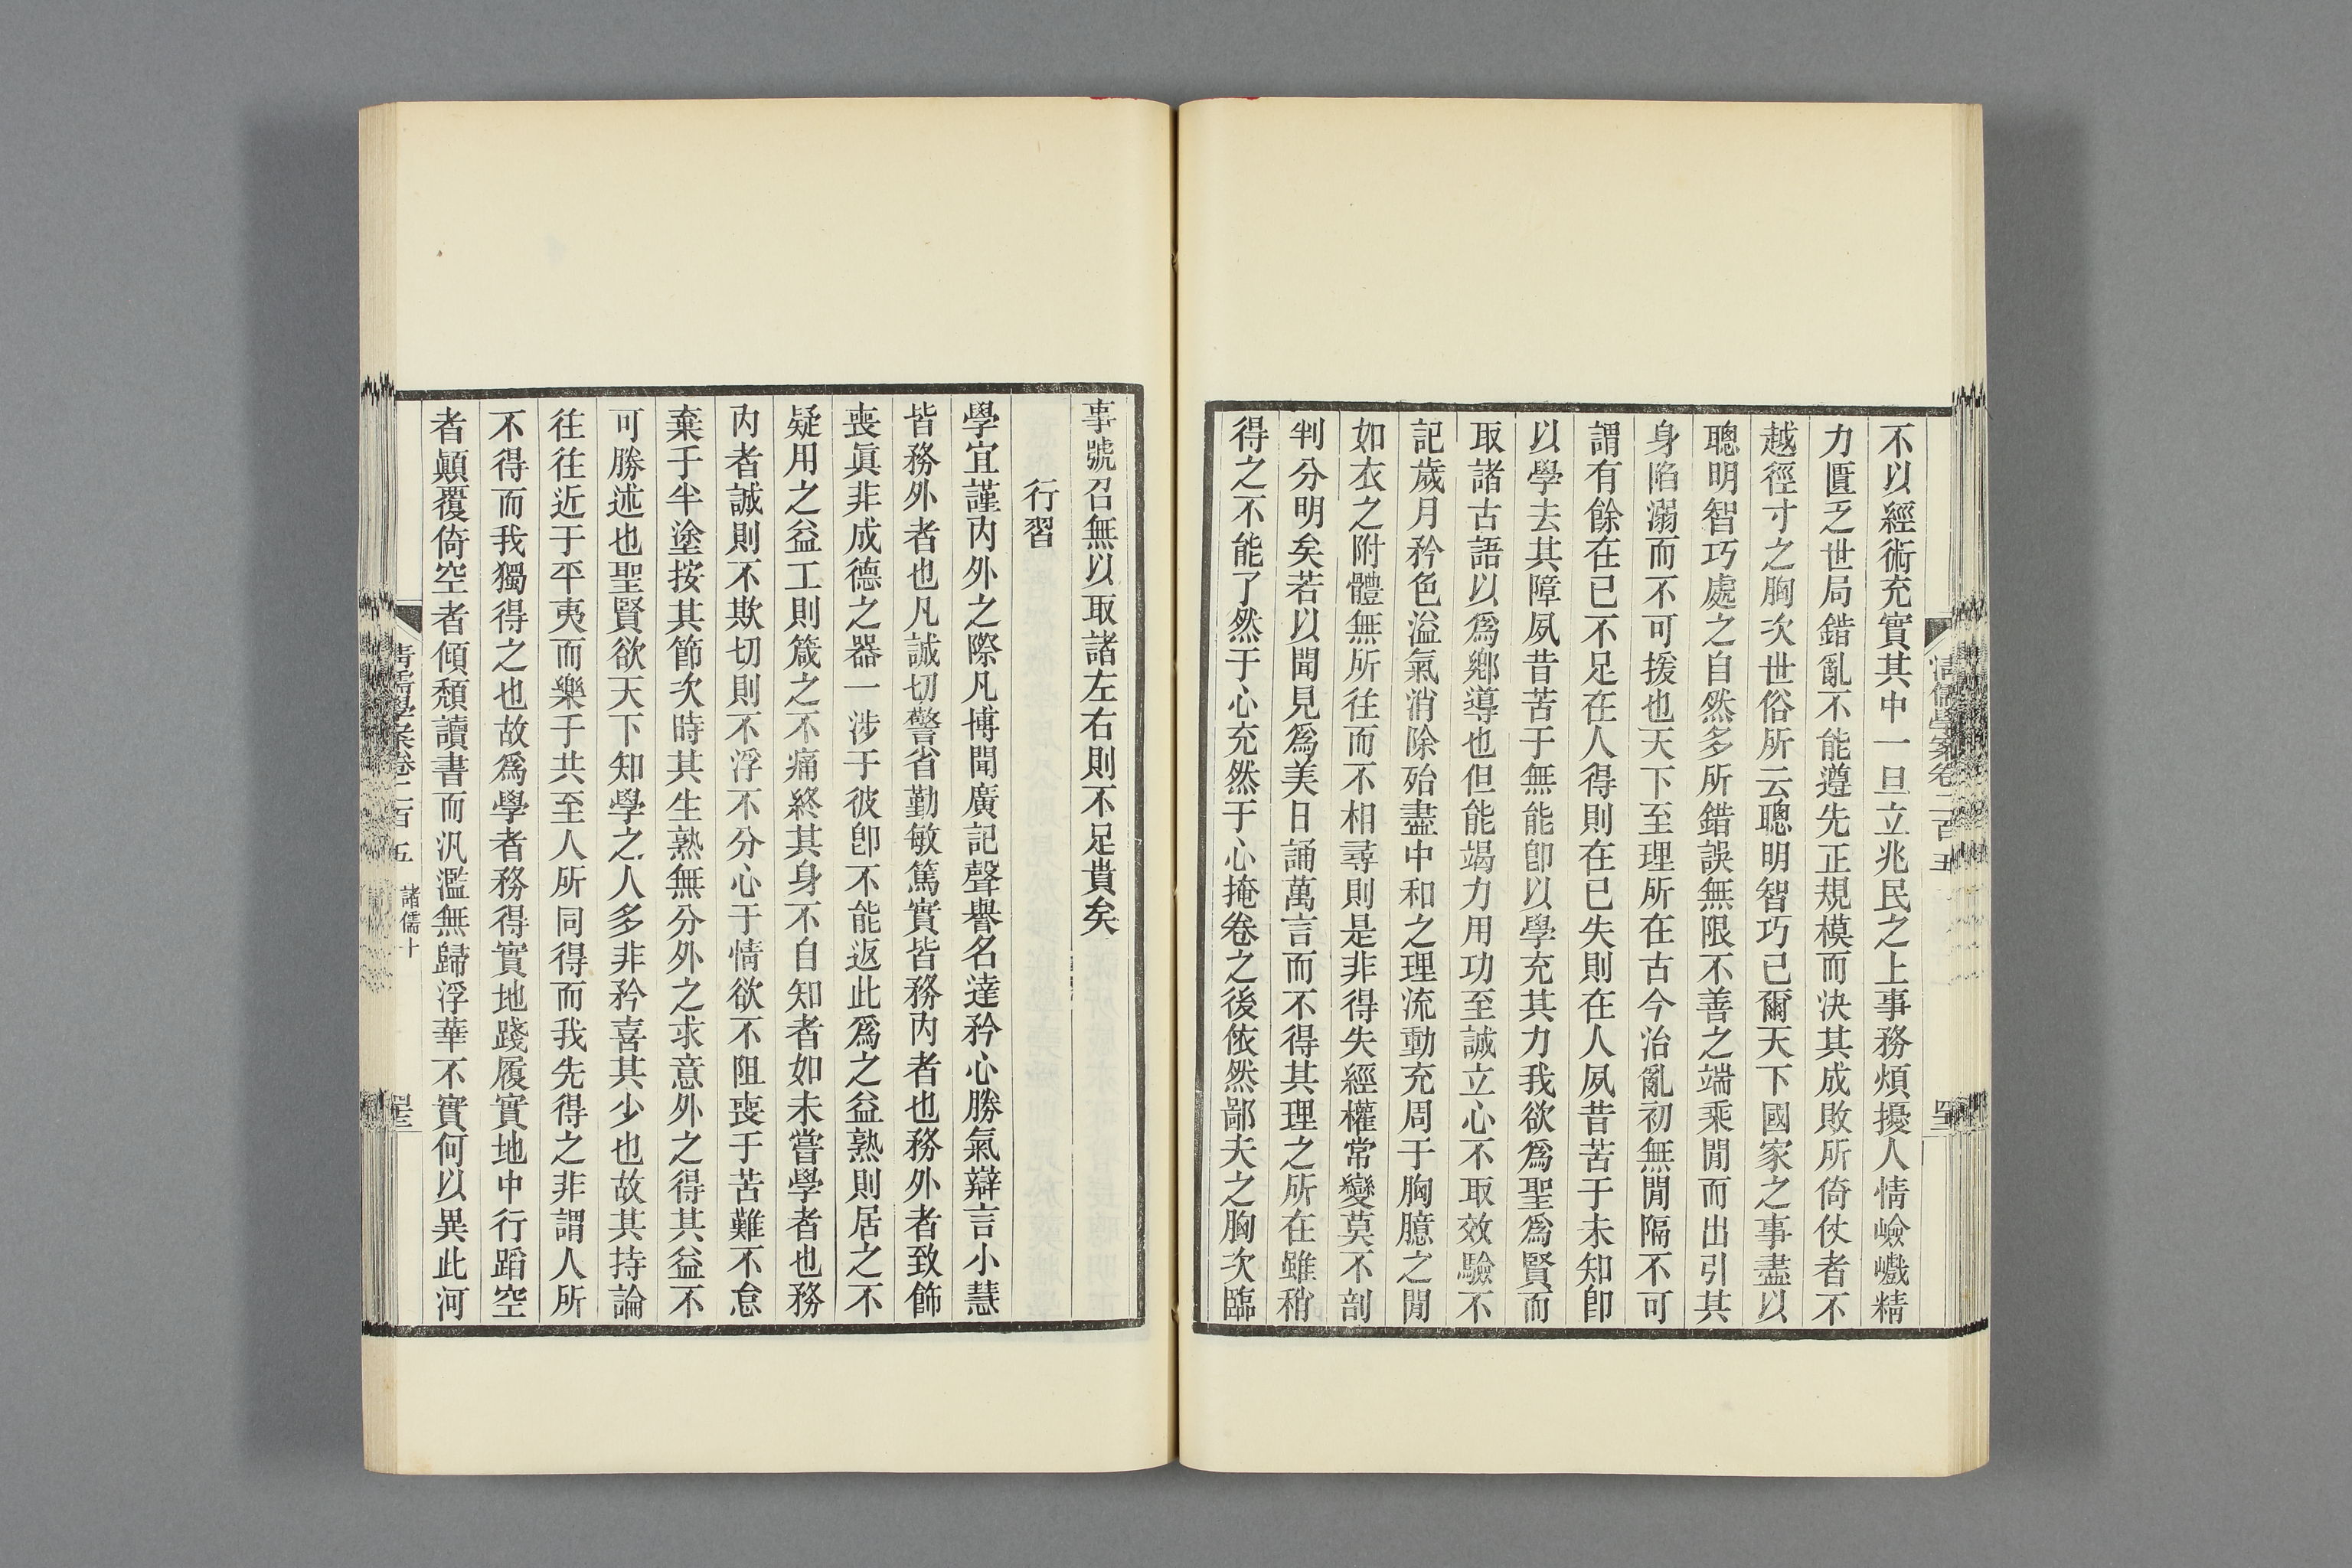 清儒學案卷二百五
不以經術充實其中一旦立兆民之上事務煩擾人情嶮巇精
力匱乏世局錯亂不能遵先正規模而決其成敗所倚仗者不
越徑寸之胸次世俗所云聰明智巧已爾天下國家之事盡以
聰明智巧處之自然多所錯誤無限不善之端乘閒而出引其
身陷溺而不可援也天下至理所在古今治亂初無閒隔不可
謂有餘在已不足在人得則在已失則在人夙昔苦于未知卽
以學去其障夙昔苦于無能卽以學充其力我欲爲聖爲賢而
取諸古語以爲鄉導也但能竭力用功至誠立心不取效驗不
記歲月矜色溢氣消除殆盡中和之理流動充周于胸臆之閒
如衣之附體無所往而不相尋則是非得失經權常變莫不剖
判分明矣若以聞見爲美日誦萬言而不得其理之所在雖稍
得之不能了然于心充然于心掩卷之後依然鄙夫之胸次臨
事號召無以取諸左右則不足貴矣
行習
學宜謹內外之際凡博聞廣記聲譽名達矜心勝氣辯言小慧
皆務外者也凡誠切警省勤敏篤實皆務內者也務外者致飾
喪眞非成德之器一涉于彼卽不能返此爲之益熟則居之不
疑用之益工則箴之不痛終其身不自知者如未嘗學者也務
內者誠則不欺切則不浮不分心于情欲不阻喪于苦難不怠
棄于半塗按其節次時其生熟無分外之求意外之得其益不
可勝述也聖賢欲天下知學之人多非矜喜其少也故其持論
往往近于平夷而樂于共至人所同得而我先得之非謂人所
不得而我獨得之也故爲學者務得實地踐履實地中行蹈空
者顚覆倚空者傾頹讀書而汎濫無歸浮華不實何以異此河
清儒學案卷二百五 諸儒十